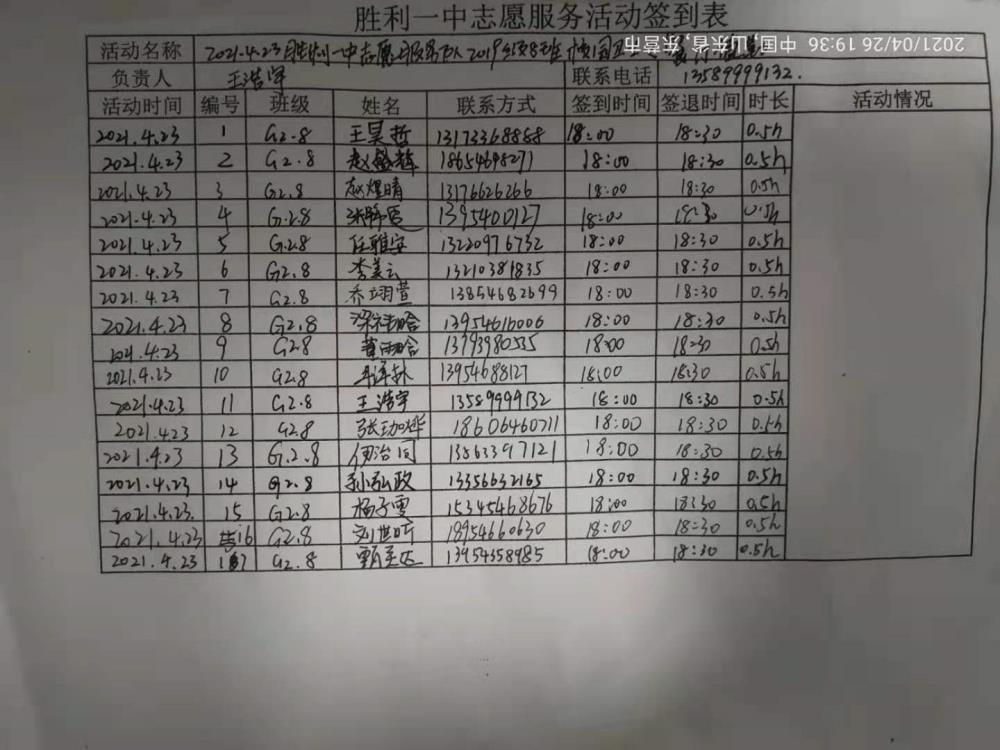 胜利一中志愿服务活动签到表
2021/04/26 19:36 中国,山东省,东营市
活动名称 2021.4.23胜利一中志愿服务队2019级8班校园
负责人 王浩宇 联系电话 13589999132.
活动时间 编号 班级 姓名 联系方式 签到时间 签退时间 时长 活动情况
2021.4.23 1 G2.8 王昊哲 13173368888 18:00 18:30 0.5h
2021.4.23 2 G2.8 赵盛辉 18654698271 18:00 18:30 0.5h
2021.4.23 3 G2.8 赵煜晴 13176626266 18:00 18:30 0.5h
2021.4.23 4 G.2.8 13954001127 18:00 18:30 0.5h
2021.4.23 5 G.2.8 任雅安 13220976732 18:00 18:30 0.5h
2021.4.23 6 G2.8 李美云 13210381835 18:00 18:30 0.5h
2021.4.23 7 G2.8 乔翊萱 13854682699 18:00 18:30 0.5h
2021.4.23 8 G2.8 13954616006 18:00 18:30 0.5h
2021.4.23 9 G2.8 13793980535 18:00 18:30 0.5h
2021.4.23 10 G2.8 13954688127 18:00 18:30 0.5h
2021.4.23 11 G2.8 王浩宇 13589999132 18:00 18:30 0.5h
2021.423 12 G2.8 18606460711 18:00 18:30 0.5h
2021.4.23 13 G.2.8 伊治同 13863397121 18:00 18:30 0.5h
2021.4.23 14 G2.8 孙弘政 13356632165 18:00 18:30 0.5h
2021.4.23. 15 G2.8 杨子雪 15345468676 18:00 18:30 0.5h
2021.4.23 16 G2.8 刘世昕 18954660630 18:00 18:30 0.5h
2021.4.23 17 G2.8 13954358985 18:00 18:30 0.5h